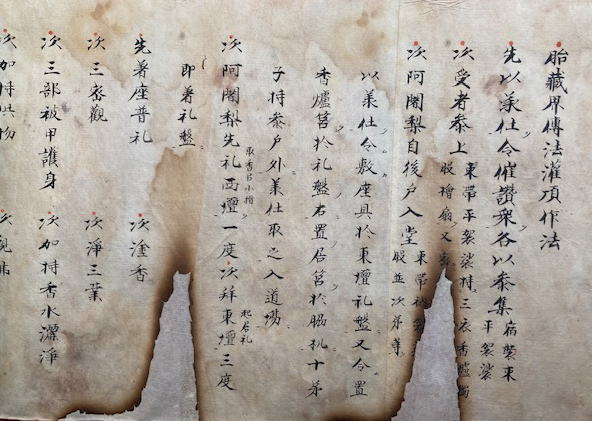 胎藏界傳法灌頂作法
先以承仕令催讃衆各以参集
宿装束
平袈裟
次受者参上
束帯平袈裟持三衣香爐
股檜扇又
次阿闍梨自後戸入堂
束帯
股並次弟
以承仕令敷座具於東壇礼盤又令置
香爐筥於礼盤右置居筥於脇机十弟
子持参戸外承仕取之入道場
次阿闍梨先礼西壇一度次拜東壇三度
取香呂小揖
起居礼
即著礼盤
先著座普礼
次塗香
次三密觀
次淨三業
次三部被甲護身
次加持香水灑淨
次加持供物